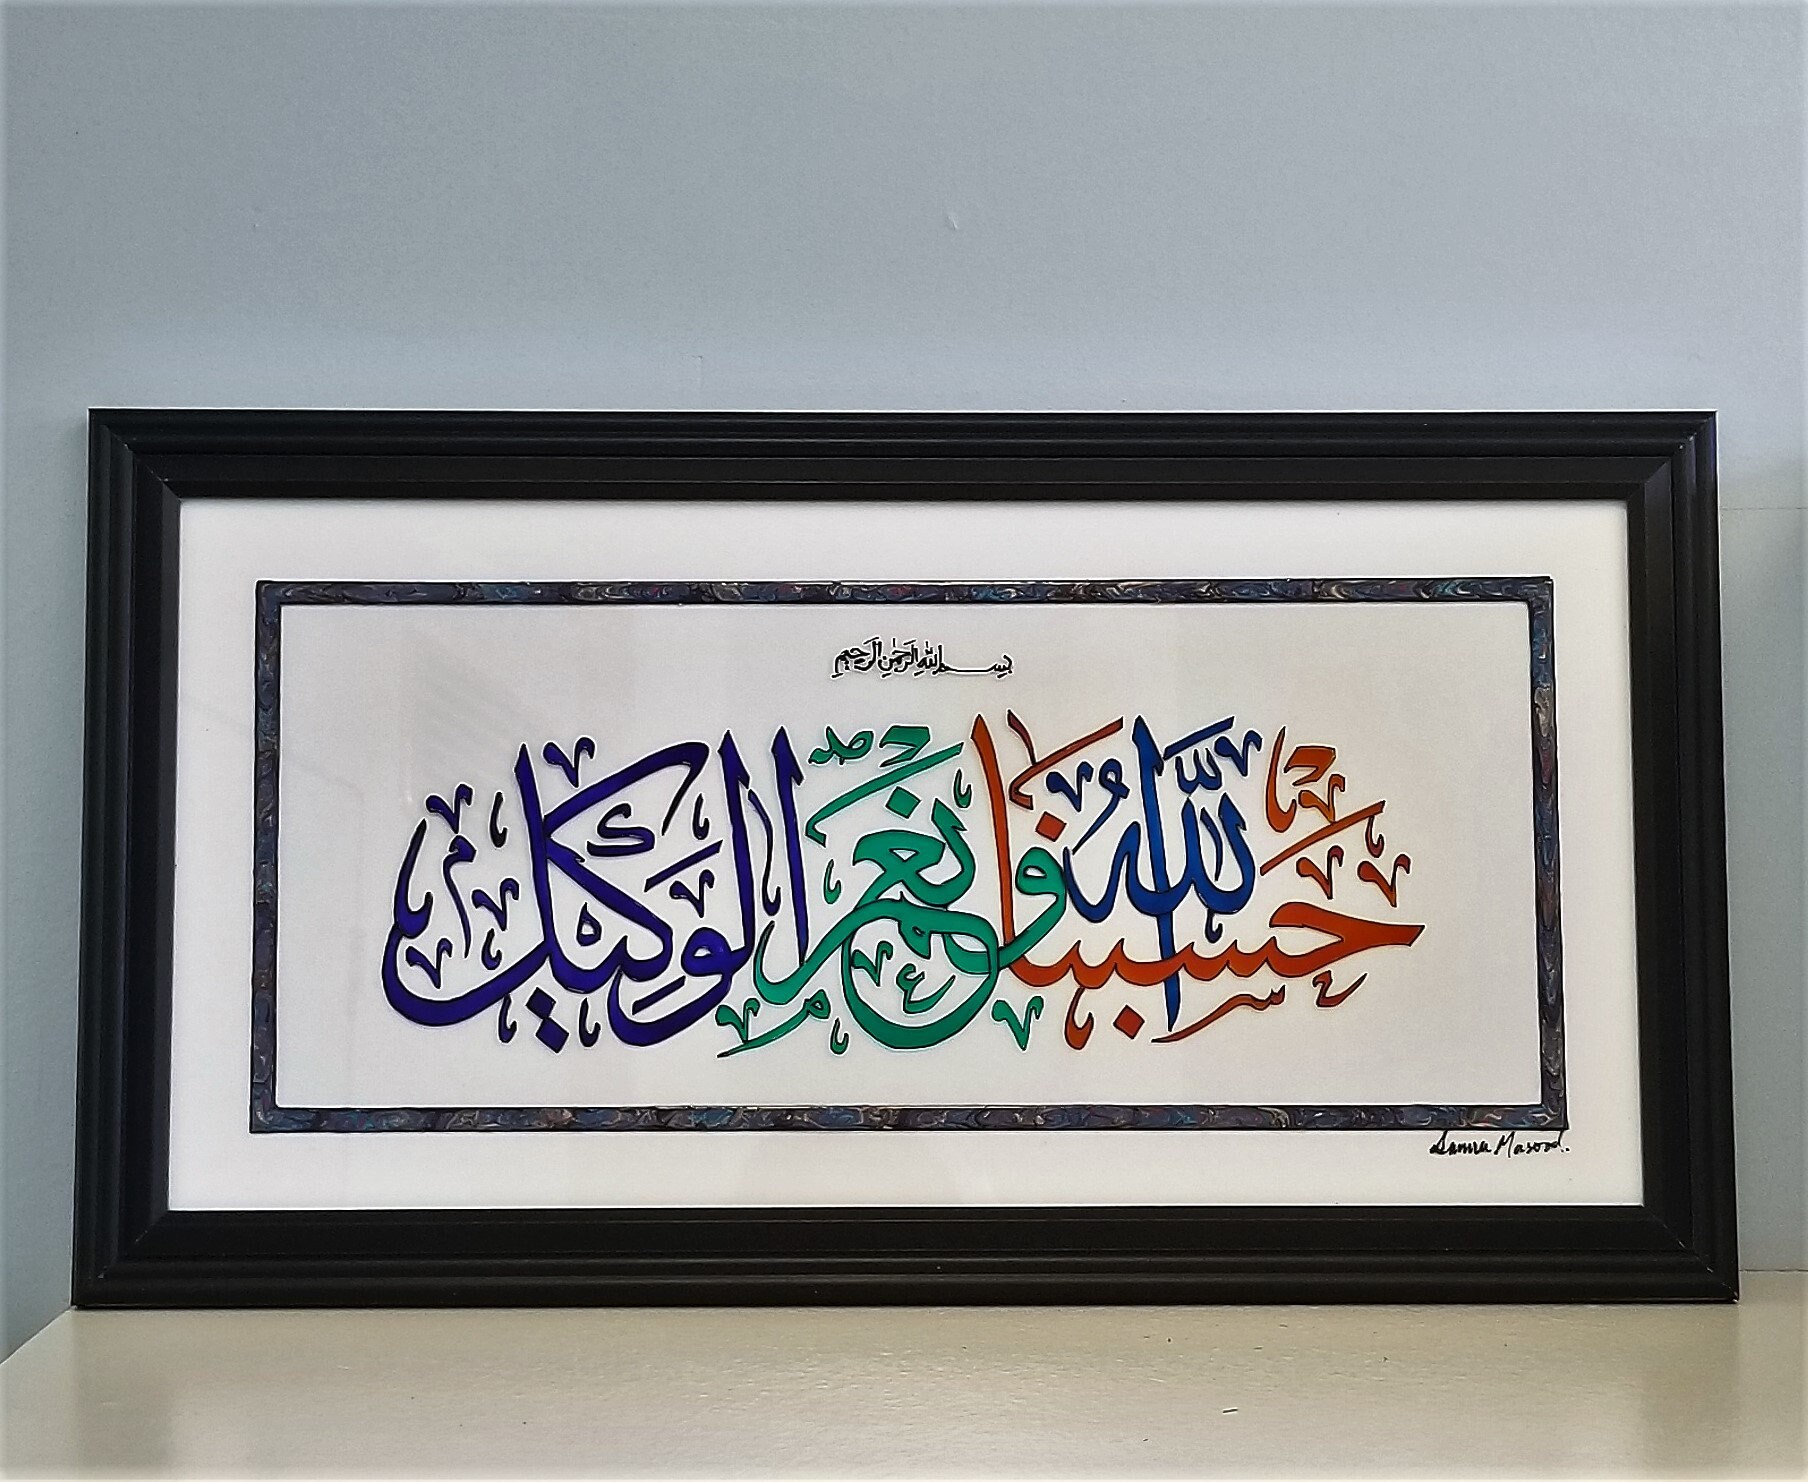 بِسْمِ اللهِ الرَّحْمٰنِ الرَّحِيْمِ
حَسْبُنَا اللهُ وَنِعْمَ الْوَكِيْلُ
Samra Masood.